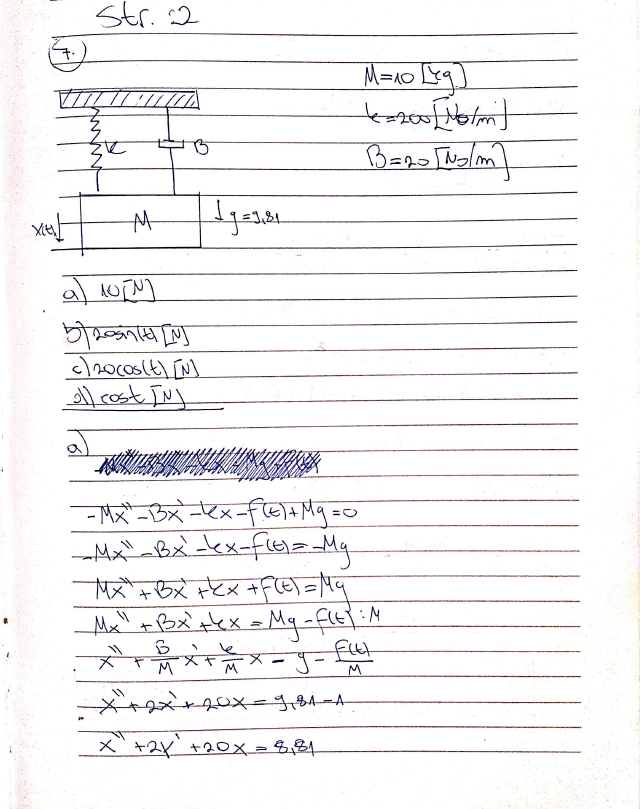 Str. 2
7.
M=10 [kg]
k=200 [N/m]
B=20 [Ns/m]
k
B
M
↓g=9,81
x(t)↓
a) 10 [N]
b) 20sin(t) [N]
c) 20cos(t) [N]
d) cost [N]
a)
-Mx'' -Bx' -kx -f(t)+Mg=0
-Mx'' -Bx' -kx-f(t)=-Mg
Mx'' +Bx' +kx +f(t)=Mg
Mx'' +Bx' +kx = Mg -f(t) :M
x'' + B/M x' + k/M x = g - f(t)/M
x'' +2x' + 20x = 9,81 -1
x'' +2x' +20x = 8,81